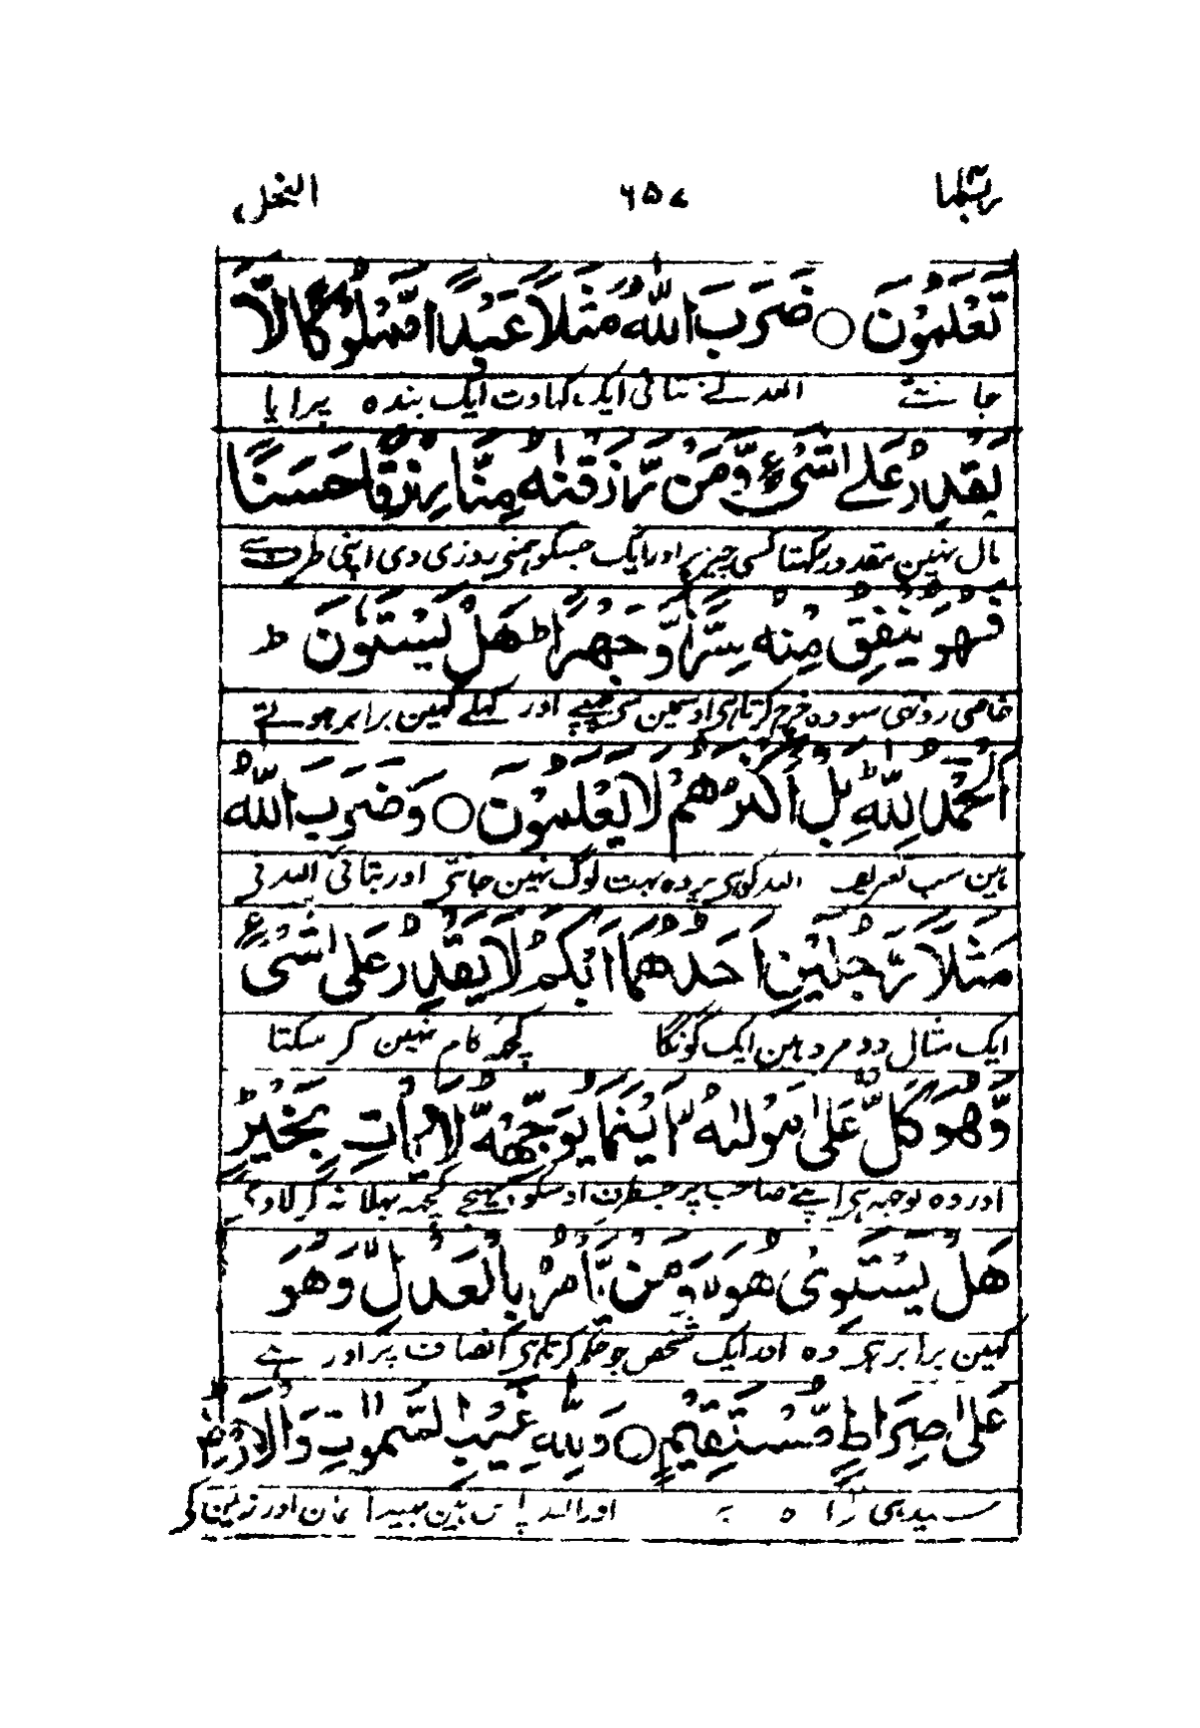 ربما ۶۵۷ النحل
تَعْلَمُوْنَ ○ ضَرَبَ اللّٰهُ مَثَلًا عَبْدًا مَّمْلُوْكًا لَّا
جانتے اللہ نے بتائی ایک کہاوت ایک بندہ پرایا
يَقْدِرُ عَلٰى شَیْءٍ وَّمَنْ رَّزَقْنٰهُ مِنَّا رِزْقًا حَسَنًا
مال نہین مقدور رکہتا کسی چیز پر اور ایک جسکو ہمنے روزی دی اپنی طرف سے
فَهُوَ يُنْفِقُ مِنْهُ سِرًّا وَّجَهْرًا ط هَلْ يَسْتَوٗنَ ط
خاصی روزی سو وہ خرچ کرتا ہی اوسمین سے چھپے اور کہلے کہین برابر ہوتے
اَلْحَمْدُ لِلّٰهِ بَلْ اَكْثَرُهُمْ لَا يَعْلَمُوْنَ ○ وَضَرَبَ اللّٰهُ
ہین سب تعریف اللہ کو ہی پر وہ بہت لوگ نہین جانتے اور بتائی اللہ نے
مَثَلًا رَّجُلَيْنِ اَحَدُهُمَا اَبْكَمُ لَا يَقْدِرُ عَلٰى شَیْءٍ
ایک مثال دو مرد ہین ایک گونگا کچہہ کام نہین کر سکتا
وَّهُوَ كَلٌّ عَلٰى مَوْلٰىهُ اَيْنَمَا يُوَجِّهْهُّ لَا يَاْتِ بِخَيْرٍ ط
اور وہ بوجہہ ہی اپنے صاحب پر جسطرف اوسکو بہیجے کچہہ بہلا نہ کر لاوے
هَلْ يَسْتَوِىْ هُوَ لا وَمَنْ يَّاْمُرُ بِالْعَدْلِ لا وَهُوَ
کہین برابر ہی وہ اور ایک شخص جو حکم کرتا ہی انصاف پر اور ہے
عَلٰى صِرَاطٍ مُّسْتَقِيْمٍ ○ وَلِلّٰهِ غَيْبُ السَّمٰوٰتِ وَالْاَرْضِ ط
سیدہی راہ پر اور اللہ پاس ہین بہید آسمان اور زمین کی